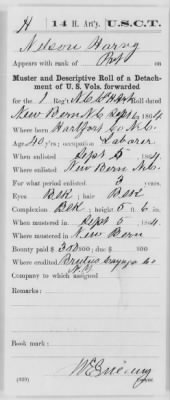 H | 14 H. Art'y. | U.S.C.T.
Nelson
Appears with rank of Pvt on
Muster and Descriptive Roll of a Detach-
ment of U. S. Vols. forwarded
for the 1 Reg't N.C. Roll dated
New Bern N.C. Sept 6, 1864.
Where born Hartford Co N.C.
Age 40 y'rs; occupation Laborer
When enlisted Sept 5, 1864.
Where enlisted New Bern N.C.
For what period enlisted 3 years.
Eyes Blk; hair Blk
Complexion Blk; height 5 ft. 6 in.
When mustered in Sept 5, 1864.
Where mustered in New Bern
Bounty paid $ 300 100; due $ 100
Where credited Brutus Cayuga Co
N.Y.
Company to which assigned
Remarks:
Book mark:
(339) Copyist.